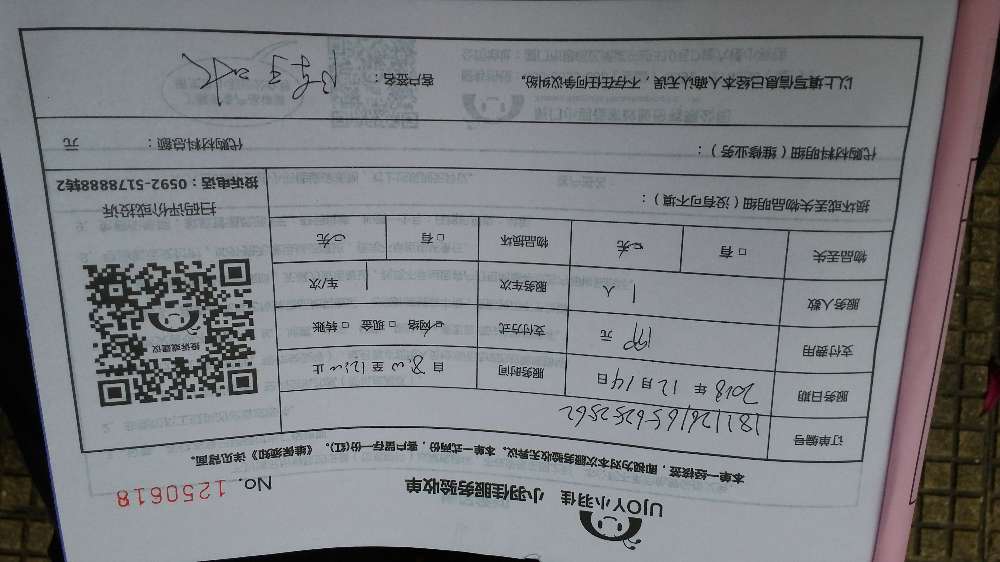 UJOY小羽佳 小羽佳服务验收单
No. 1250618
本单一经接签，即视为对本次服务验收无异议。本单一式两份，客户留存一份(红)。《维保须知》详见背面。
订单编号 181126161656252562
服务日期 2018 年 12 月 14 日 服务时间 自 8:00 至 12:00 止
支付费用 199 元 支付方式 网络 现金 转账
服务人数 1 人 服务车次 1 车/次
物品丢失 有 无 物品损坏 有 无
损坏或丢失物品明细（没有可不填）：
投诉或建议
扫码评价或投诉
投诉电话：0592-5178888转2
代购材料明细（维修业务）： 代购材料总额： 元
以上填写信息已经本人确认无误，不存在任何争议纠纷。 客户签名：